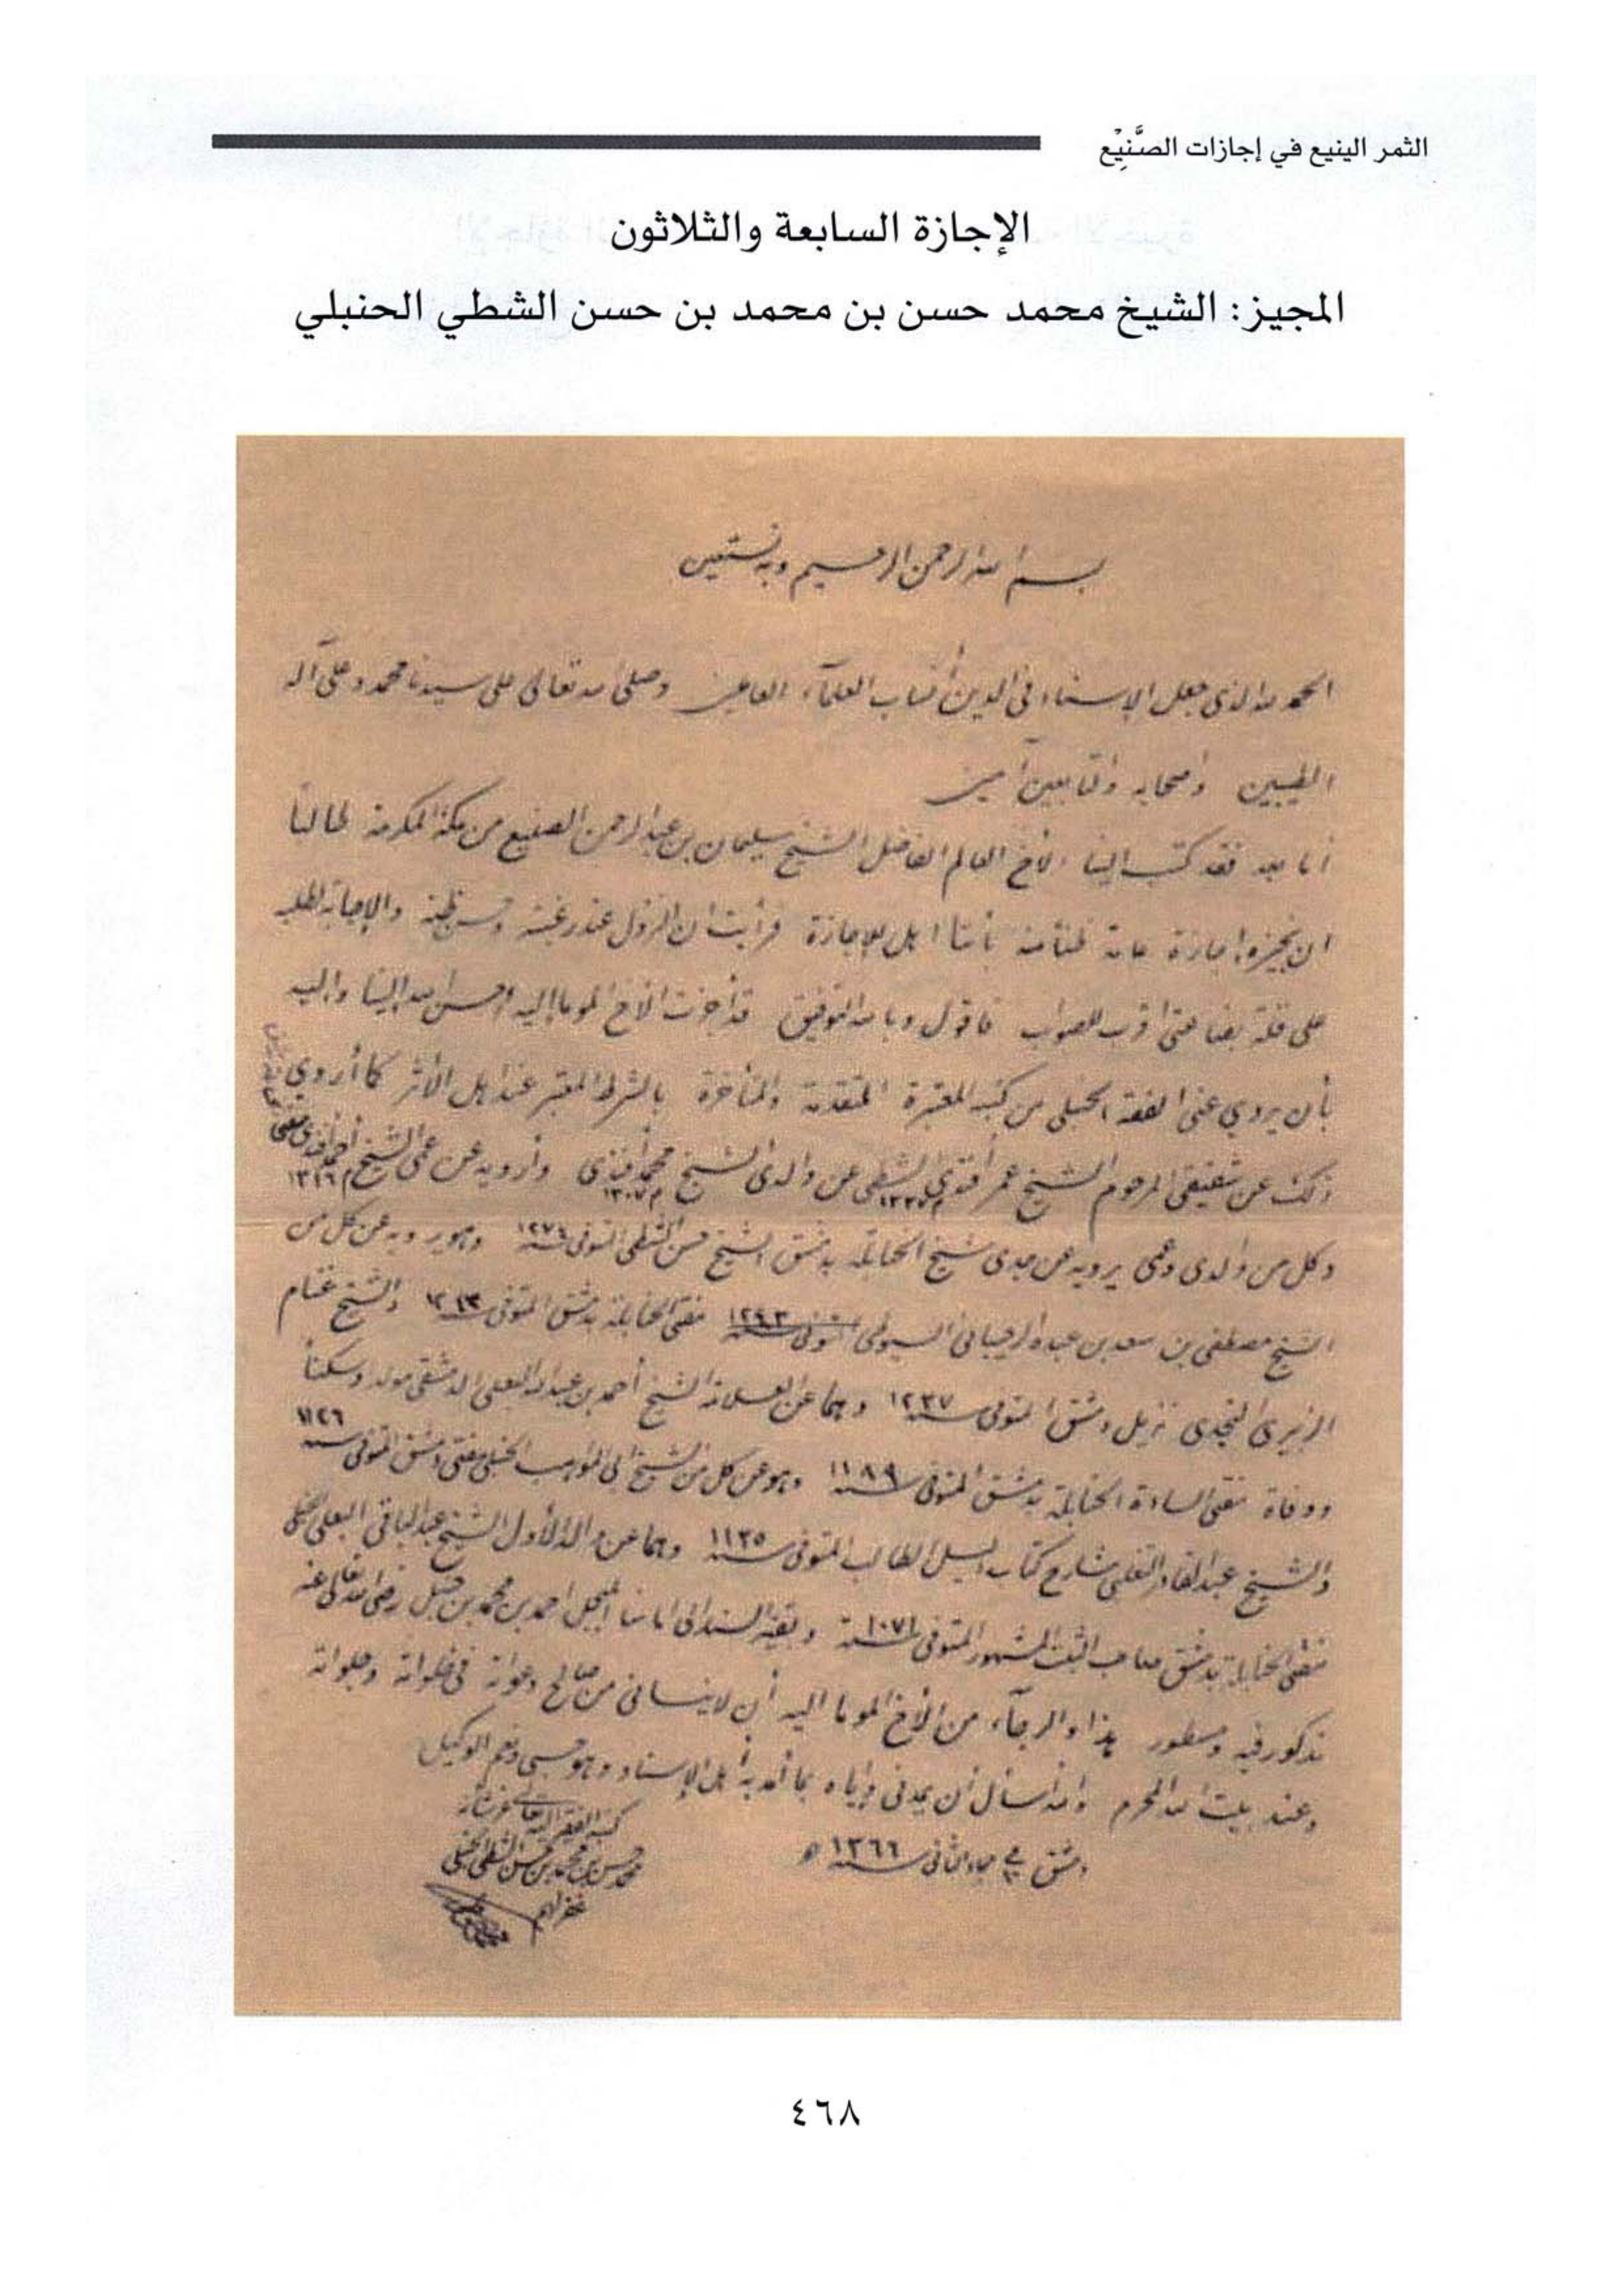 الثمر الينيع في إجازات الصَّنِيْع
الإجازة السابعة والثلاثون
المجيز: الشيخ محمد حسن بن محمد بن حسن الشطي الحنبلي
بسم الله الرحمن الرحيم وبه نستعين
الحمد لله الذي جعل الإسناد في الدين أنساب العلمآء العاملين وصلى الله تعالى على سيدنا محمد وعلى آله
الطيبين وأصحابه والتابعين آمين
أما بعد فقد كتب الينا الأخ العالم الفاضل الشيخ سليمان بن عبد الرحمن الصنيع من مكة المكرمة طالباً
ان نجيزه اجازة عامة ظناً منه بأننا اهل للإجازة فرأيت ان النزول عند رغبته وحسن ظنه والإجابة لطلبه
على قلة بضاعتي اقرب للصواب فاقول وبالله التوفيق قد أجزت الأخ الموما إليه احسن الله الينا واليه
بأن يروي عني الفقه الحنبلي من كتبه المعتبرة المتقدمة والمتأخرة بالشرط المعتبر عند اهل الأثر كما أروي
ذلك عن شقيقي المرحوم الشيخ عمر أفندي الشطي ١٣٣٧ عن والدي الشيخ محمد أفندي م ١٣٠٧ وأرويه عن عمي الشيخ أحمد أفندي م ١٣١٦
وكل من والدي وعمي يرويه عن جدي شيخ الحنابلة بدمشق الشيخ حسن الشطي المتوفى سنة ١٢٧٤ وهو يرويه عن كل من
الشيخ مصطفى بن سعد بن عبده الرحيباني السيوطي مفتي الحنابلة بدمشق المتوفى سنة والشيخ غنام
الزبيري النجدي نزيل دمشق المتوفى سنة ١٢٣٧ وهما عن العلامة الشيخ أحمد بن عبد الله البعلي الدمشقي مولداً وسكناً
ووفاة مفتي السادة الحنابلة بدمشق المتوفى سنة ١١٨٩ وهو عن كل من الشيخ ابي المواهب الحنبلي مفتي دمشق المتوفى سنة ١١٢٦
والشيخ عبد القادر التغلبي شارح كتاب دليل الطالب المتوفى سنة ١١٣٥ وهما عن والد الأول الشيخ عبد الباقي البعلي الحنبلي
مفتي الحنابلة بدمشق صاحب الثبت المشهور المتوفى سنة ١٠٧١ وبقية السند الى امامنا المبجل احمد بن محمد بن حنبل رضي الله تعالى عنه
مذكور فيه ومسطور هذا والرجآء من الأخ الموما اليه أن لا ينساني من صالح دعواته في خلواته وجلواته
وعند بيت الله المحرم والله أسأل أن يمدني وإياه بما أمد به أهل الإسناد وهو حسبي ونعم الوكيل
دمشق في جمادى الثاني سنة ١٣٦٦ هـ
كتبه الفقير اليه
محمد حسن بن محمد بن حسن الشطي الحنبلي
غفر لهم
٤٦٨